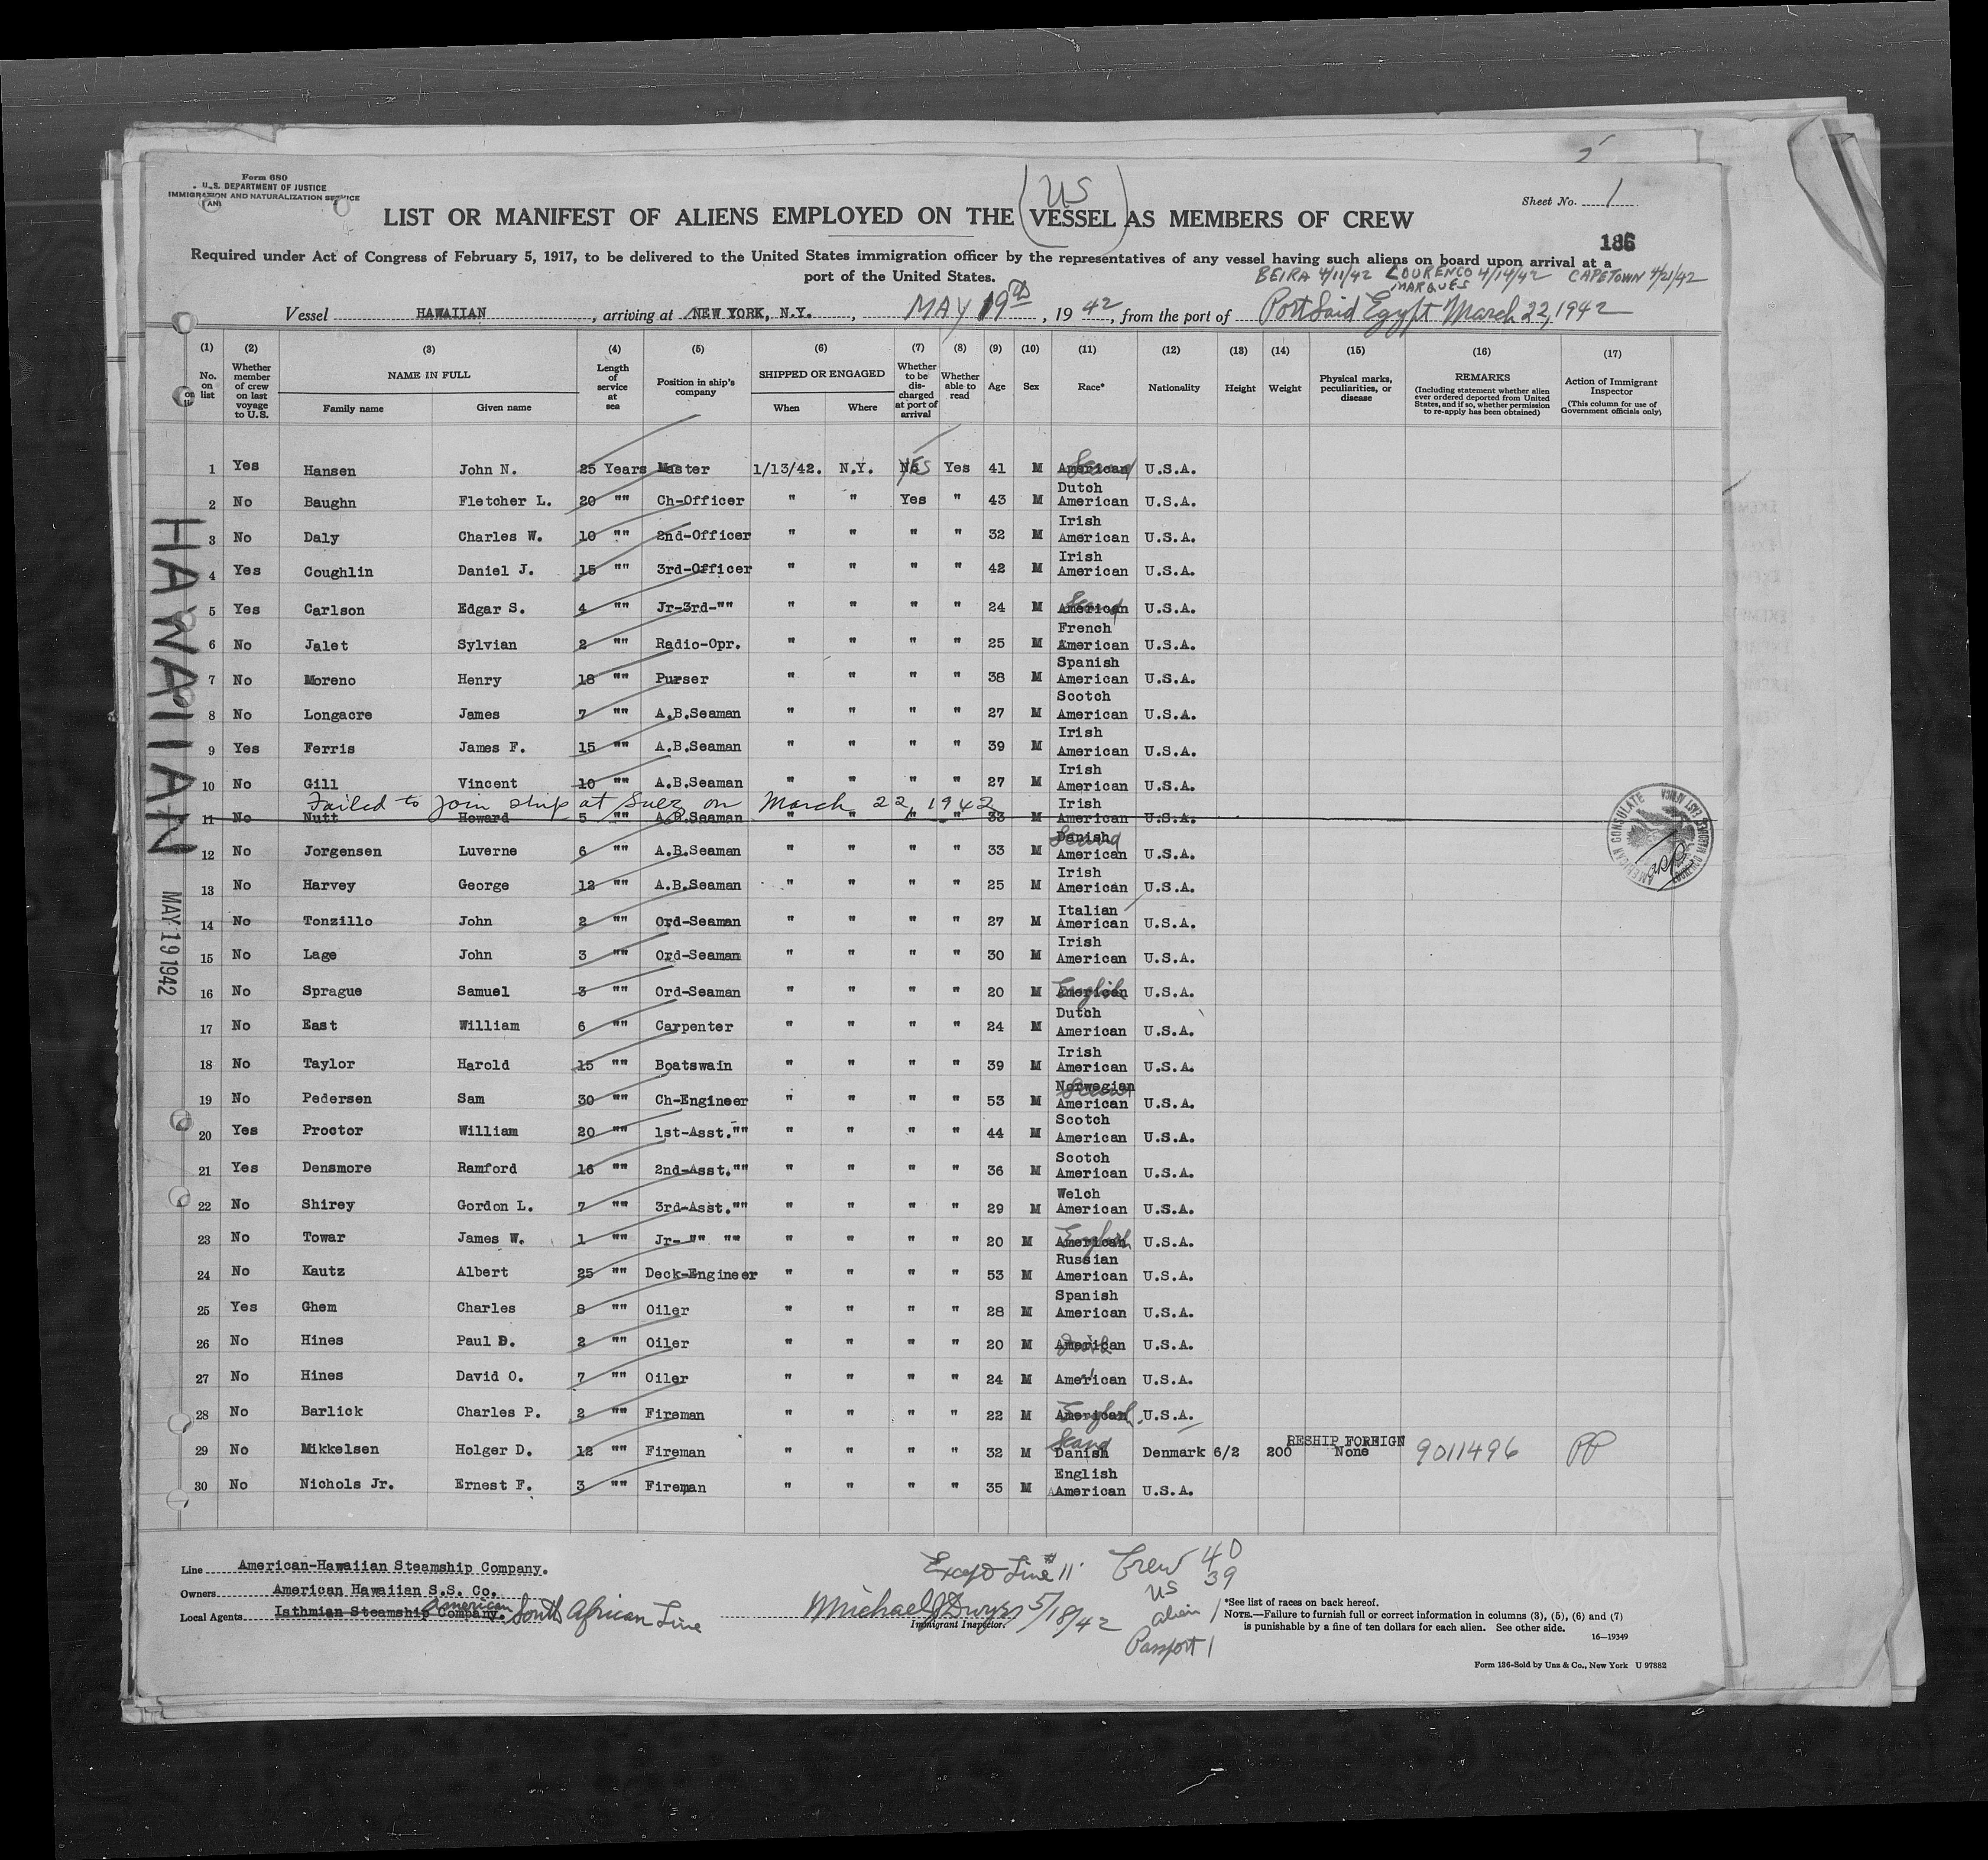 Form 680
U.S. DEPARTMENT OF JUSTICE
IMMIGRATION AND NATURALIZATION SERVICE
Sheet No. 1
(US)
LIST OR MANIFEST OF ALIENS EMPLOYED ON THE VESSEL AS MEMBERS OF CREW
186
Required under Act of Congress of February 5, 1917, to be delivered to the United States immigration officer by the representatives of any vessel having such aliens on board upon arrival at a
port of the United States.
BEIRA 4/11/42 LOURENCO MARQUES 4/14/42 CAPETOWN 4/21/42
Vessel HAWAIIAN, arriving at NEW YORK, N.Y., MAY 19th, 1942, from the port of Port Said Egypt March 22, 1942
(1) (2) (3) (4) (5) (6) (7) (8) (9) (10) (11) (12) (13) (14) (15) (16) (17)
No. on list
Whether member of crew on last voyage to U.S.
NAME IN FULL
Family name Given name
Length of service at sea
Position in ship's company
SHIPPED OR ENGAGED
When Where
Whether to be discharged at port of arrival
Whether able to read
Age Sex Race* Nationality Height Weight
Physical marks, peculiarities, or disease
REMARKS
(Including statement whether alien ever ordered deported from United States, and if so, whether permission to re-apply has been obtained)
Action of Immigrant Inspector
(This column for use of Government officials only)
1 Yes Hansen John N. 25 Years Master 1/13/42. N.Y. Yes Yes 41 M American Scand U.S.A.
2 No Baughn Fletcher L. 20 "" Ch-Officer " " Yes " 43 M Dutch American U.S.A.
3 No Daly Charles W. 10 "" 2nd-Officer " " " " 32 M Irish American U.S.A.
4 Yes Coughlin Daniel J. 15 "" 3rd-Officer " " " " 42 M Irish American U.S.A.
5 Yes Carlson Edgar S. 4 "" Jr-3rd-"" " " " " 24 M American Scand U.S.A.
6 No Jalet Sylvian 2 "" Radio-Opr. " " " " 25 M French American U.S.A.
7 No Moreno Henry 18 "" Purser " " " " 38 M Spanish American U.S.A.
8 No Longacre James 7 "" A.B.Seaman " " " " 27 M Scotch American U.S.A.
9 Yes Ferris James F. 15 "" A.B.Seaman " " " " 39 M Irish American U.S.A.
10 No Gill Vincent 10 "" A.B.Seaman " " " " 27 M Irish American U.S.A.
Failed to join ship at Suez on March 22, 1942
11 No Nutt Howard 5 "" A.B.Seaman " " " " 33 M Irish American U.S.A.
12 No Jorgensen Luverne 6 "" A.B.Seaman " " " " 33 M Danish Scand American U.S.A.
13 No Harvey George 12 "" A.B.Seaman " " " " 25 M Irish American U.S.A.
14 No Tonzillo John 2 "" Ord-Seaman " " " " 27 M Italian American U.S.A.
15 No Lage John 3 "" Ord-Seaman " " " " 30 M Irish American U.S.A.
16 No Sprague Samuel 3 "" Ord-Seaman " " " " 20 M American English U.S.A.
17 No East William 6 "" Carpenter " " " " 24 M Dutch American U.S.A.
18 No Taylor Harold 15 "" Boatswain " " " " 39 M Irish American U.S.A.
19 No Pedersen Sam 30 "" Ch-Engineer " " " " 53 M Norwegian Scand American U.S.A.
20 Yes Proctor William 20 "" 1st-Asst."" " " " " 44 M Scotch American U.S.A.
21 Yes Densmore Ramford 16 "" 2nd-Asst."" " " " " 36 M Scotch American U.S.A.
22 No Shirey Gordon L. 7 "" 3rd-Asst."" " " " " 29 M Welch American U.S.A.
23 No Towar James W. 1 "" Jr- "" "" " " " " 20 M American English U.S.A.
24 No Kautz Albert 25 "" Deck-Engineer " " " " 53 M Russian American U.S.A.
25 Yes Ghem Charles 8 "" Oiler " " " " 28 M Spanish American U.S.A.
26 No Hines Paul D. 2 "" Oiler " " " " 20 M American U.S.A.
27 No Hines David O. 7 "" Oiler " " " " 24 M American U.S.A.
28 No Barlick Charles P. 2 "" Fireman " " " " 22 M American English U.S.A.
29 No Mikkelsen Holger D. 12 "" Fireman " " " " 32 M Scand Danish Denmark 6/2 200 RESHIP FOREIGN None 9011496 PP
30 No Nichols Jr. Ernest F. 3 "" Fireman " " " " 35 M English American U.S.A.
HAWAIIAN
MAY 19 1942
AMERICAN CONSULATE
Line American-Hawaiian Steamship Company.
Owners American Hawaiian S.S. Co.
Local Agents Isthmian Steamship Company. American South African Line
Except Line #11
Michael J Dwyer 5/18/42
Immigrant Inspector.
Crew 40
US 39
alien 1
Passport 1
*See list of races on back hereof.
NOTE.—Failure to furnish full or correct information in columns (3), (5), (6) and (7)
is punishable by a fine of ten dollars for each alien. See other side.
16—19349
Form 136-Sold by Unz & Co., New York U 97882